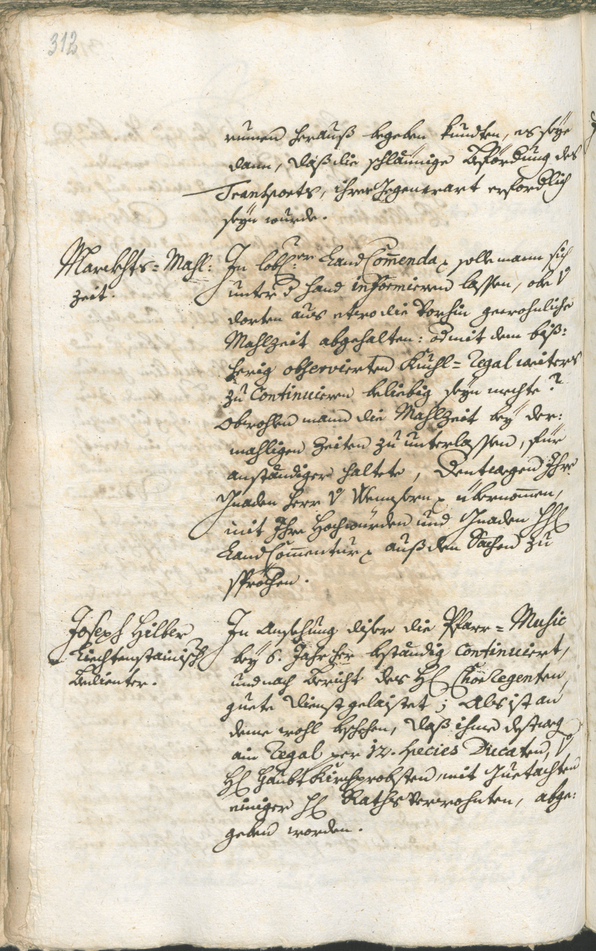 312
rumen herauß begeben kundten, es seye
dann, daß die schläunige Beförderung des
Trantports, ihrer Gegenwart erforderlich
seyn wurde.
Marckhts=Mahl:
zeit.
In lobl: Land Comenda solle mann sich
unter d' Hand informieren lassen, ob
dorten aus etwo die Vorhin gewohnliche
Mahlzeit abgehalten: od mit dem biß:
herig observierten Kuchl=Regal weiters
zu Continuieren beliebig seyn mechte?
Obwohlen mann die Mahlzeit bey der:
mahligen Zeiten zu unterlassen, für
anständiger haltete, Dentwegen Ihre
Gnaden Herr übernommen,
mit Ihro Hochwürden und Gnaden H:
Land Commentur auß den Sachen zu
sprechen.
Joseph Hilber
Liechtenstainisch
Bedienter.
In Ansehung diser die Pfarr=Music
bey 6. Jahr her bständig continuiert,
und nach Bericht des H: Chor Regenten,
guete Dienst gelaistet; Als ist an
deme wohl bschehen, daß ihme destweg
ain Regal per 12. Species Ducaten,
H: Haubt Kirchprobsten, mit Guetachten
einiger H: Raths Verwohnten, abge:
geben worden.